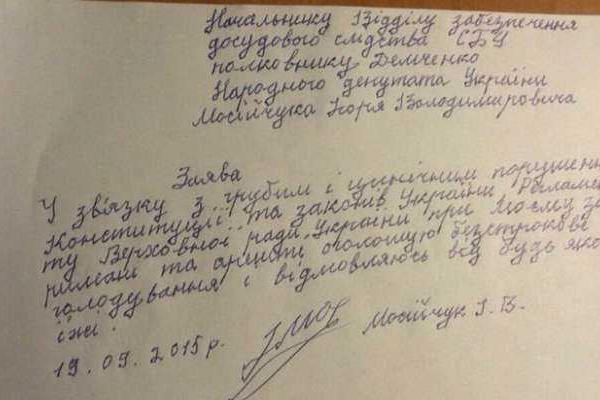 Начальнику Відділу забезпечення
досудового слідства СБУ
полковнику Демченко
Народного депутата України
Мосійчука Ігоря Володимировича
Заява
У зв'язку з грубим і цинічним порушен
Конституції та законів України, Регламен
ту Верховної ради України при моєму за
риманні та арешті оголошую безстрокове
голодування і відмовляюсь від будь яко
їжі.
19.09.2015 р. Мосійчук І.В.